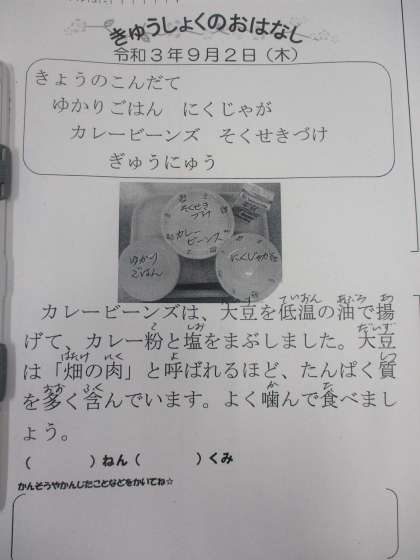 きゅうしょくのおはなし
令和３年９月２日（木）
きょうのこんだて
ゆかりごはん　にくじゃが
カレービーンズ　そくせきづけ
ぎゅうにゅう
そくせき
づけ
カレー
ビーンズ
ゆかり
ごはん
にくじゃが
カレービーンズは、大豆を低温の油で揚
げて、カレー粉と塩をまぶしました。大豆
は「畑の肉」と呼ばれるほど、たんぱく質
を多く含んでいます。よく噛んで食べまし
ょう。
（　　　　）ねん（　　　　）くみ
かんそうやかんじたことなどをかいてね☆